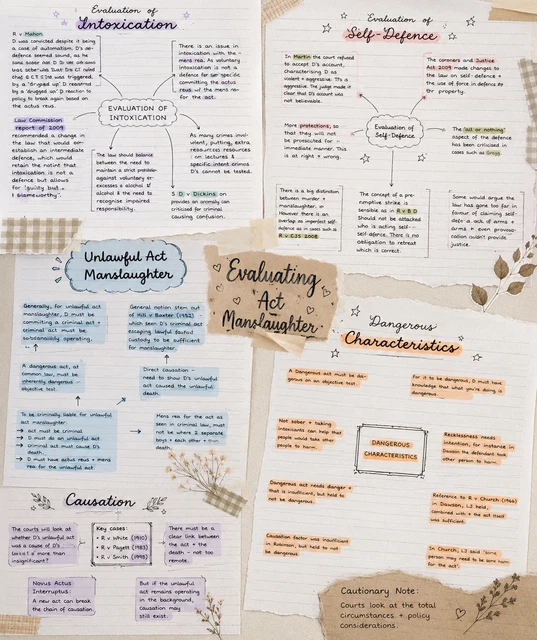 Evaluation of
Intoxication
R v Mahon
D was convicted despite it being
a case of automatism. D's de-
fence seemed sound, as he
was triggered,
by a "drugged up". D reaction to
policy to break again based on
the actus reus.
There is an issue in
intoxication with the
mens rea. As voluntary
intoxication is not a
defence for specific
committing the actus
reus w/ the mens rea
for the act.
EVALUATION OF
INTOXICATION
Law Commission
report of 2009
recommended a change in
the law that would
establish an intermediate
defence, which would
retain the notion that
intoxication is not a
defence but allows
for "guilty but
blameworthy".
The law should balance
between the need to
maintain a strict
against voluntary
excesses alcohol &
alcohol & the need to
recognise impaired
responsibility.
As many crimes
putting, extra
resources
on lectures &
specific intent crimes
D's cannot be tested.
S D v Dickins on
provides an anomaly can
criticised for criminal
causing confusion.
Evaluation of
Self-Defence
In Martin the court refused
to accept D's account,
characterising D as
violent + aggressive. It's a
aggressive. The judge made it
clear that D's account was
not believable.
The coroners and Justice
Act 2009 made changes to
the law on self-defence +
the use of force in defence
property.
Evaluation of
Self-Defence
More protections, so
that they will not
be prosecuted for
immediate manner. This
is at right + wrong.
The 'all or nothing'
aspect of the defence
has been criticised in
cases such as
There is a big distinction
between murder +
However there is an
overlap as imperfect self
defence such as
R v CJS 2008
The concept of a pre-
emptive strike is
sensible as in R v B D
Should not be attacked
who is acting self-
self-defence. There is no
obligation to retreat
which is correct.
Some would argue the
law has gone too far in
favour of claiming self-
defence
arms + even provoca-
tion couldn't provide
justice.
Unlawful Act
Manslaughter
Evaluating
Act
Manslaughter
Generally, for unlawful act
manslaughter, D must be
committing a criminal act +
criminal act must be
operating.
General notion stem out
of Hill v Baxter (1952)
which seen D's criminal act
escaping lawful
custody to be sufficient
for manslaughter.
A dangerous act, at
common law, must be
inherently dangerous -
objective test.
Direct causation -
need to show D's unlawful
act caused the unlawful
death.
To be criminally liable for unlawful
act manslaughter:
→ act must be criminal
→ D must do an unlawful act
→ criminal act must cause D's
death
→ D must have actus reus + mens
rea for the unlawful act
Mens rea for the act as
seen in criminal law, must
not be where 2 separate
boys + each other +
death.
Causation
The courts will look at
whether D's unlawful act
was a cause of D's
a more than
insignificant?
Key cases:
• R v White (1910)
• R v Pagett (1983)
• R v Smith (1998)
There must be a
clear link between
the act + the
death - not too
remote.
Novus Actus
Interruptus:
A new act can break
the chain of causation.
But if the unlawful
act remains operating
in the background,
causation may
still exist.
Dangerous
Characteristics
A Dangerous act must be da-
gerous on an objective test.
For it to be dangerous, D must have
knowledge that what you're doing is
dangerous.
Not sober + taking
intoxicants can help that
people would take other
people to harm.
DANGEROUS
CHARACTERISTICS
Recklessness needs
intention, for instance in
Dawson the defendant took
other person to harm.
Dangerous act needs danger +
that is insufficient, but held to
not be dangerous.
Reference to R v Church (1966)
in Dawson, LJ held,
combined with + the act itself
was sufficient.
Causation factor was insufficient
in Robinson, but held to not
be dangerous.
In Church, LJ said 'some
person may need to be sore harm
for the act'.
Cautionary Note:
Courts look at the total
circumstances + policy
considerations.